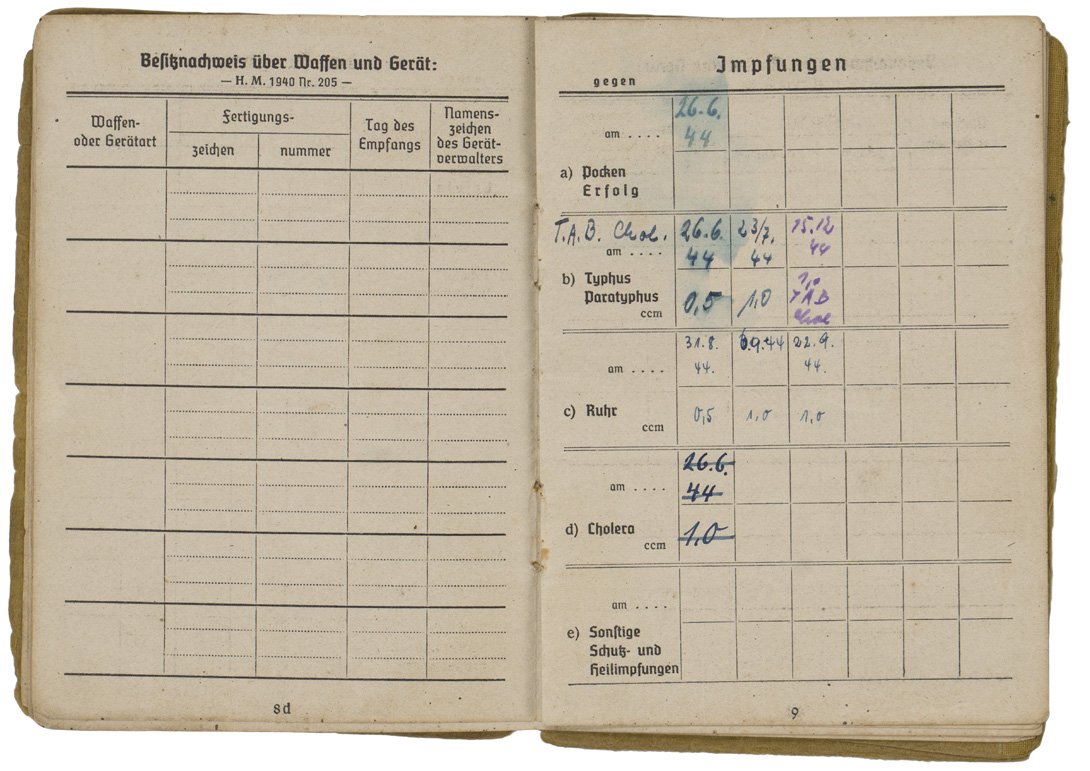 Besitznachweis über Waffen und Gerät:
— H. M. 1940 Nr. 205 —
Waffen-
oder Gerätart
Fertigungs-
zeichen
nummer
Tag des
Empfangs
Namens-
zeichen
des Gerät-
verwalters
8d
Impfungen
gegen
26.6.
am . . . . 44
a) Pocken
Erfolg
T.A.B. Chol. 26.6. 23/7. 15.12
am . . . . 44 44 44
b) Typhus 1,0
Paratyphus 0,5 1,0 TAB
ccm Chol
31.8. 6.9.44 22.9.
am . . . . 44. 44.
c) Ruhr 0,5 1,0 1,0
ccm
26.6.
am . . . . 44
d) Cholera 1,0
ccm
am . . . .
e) Sonstige
Schutz- und
Heilimpfungen
9